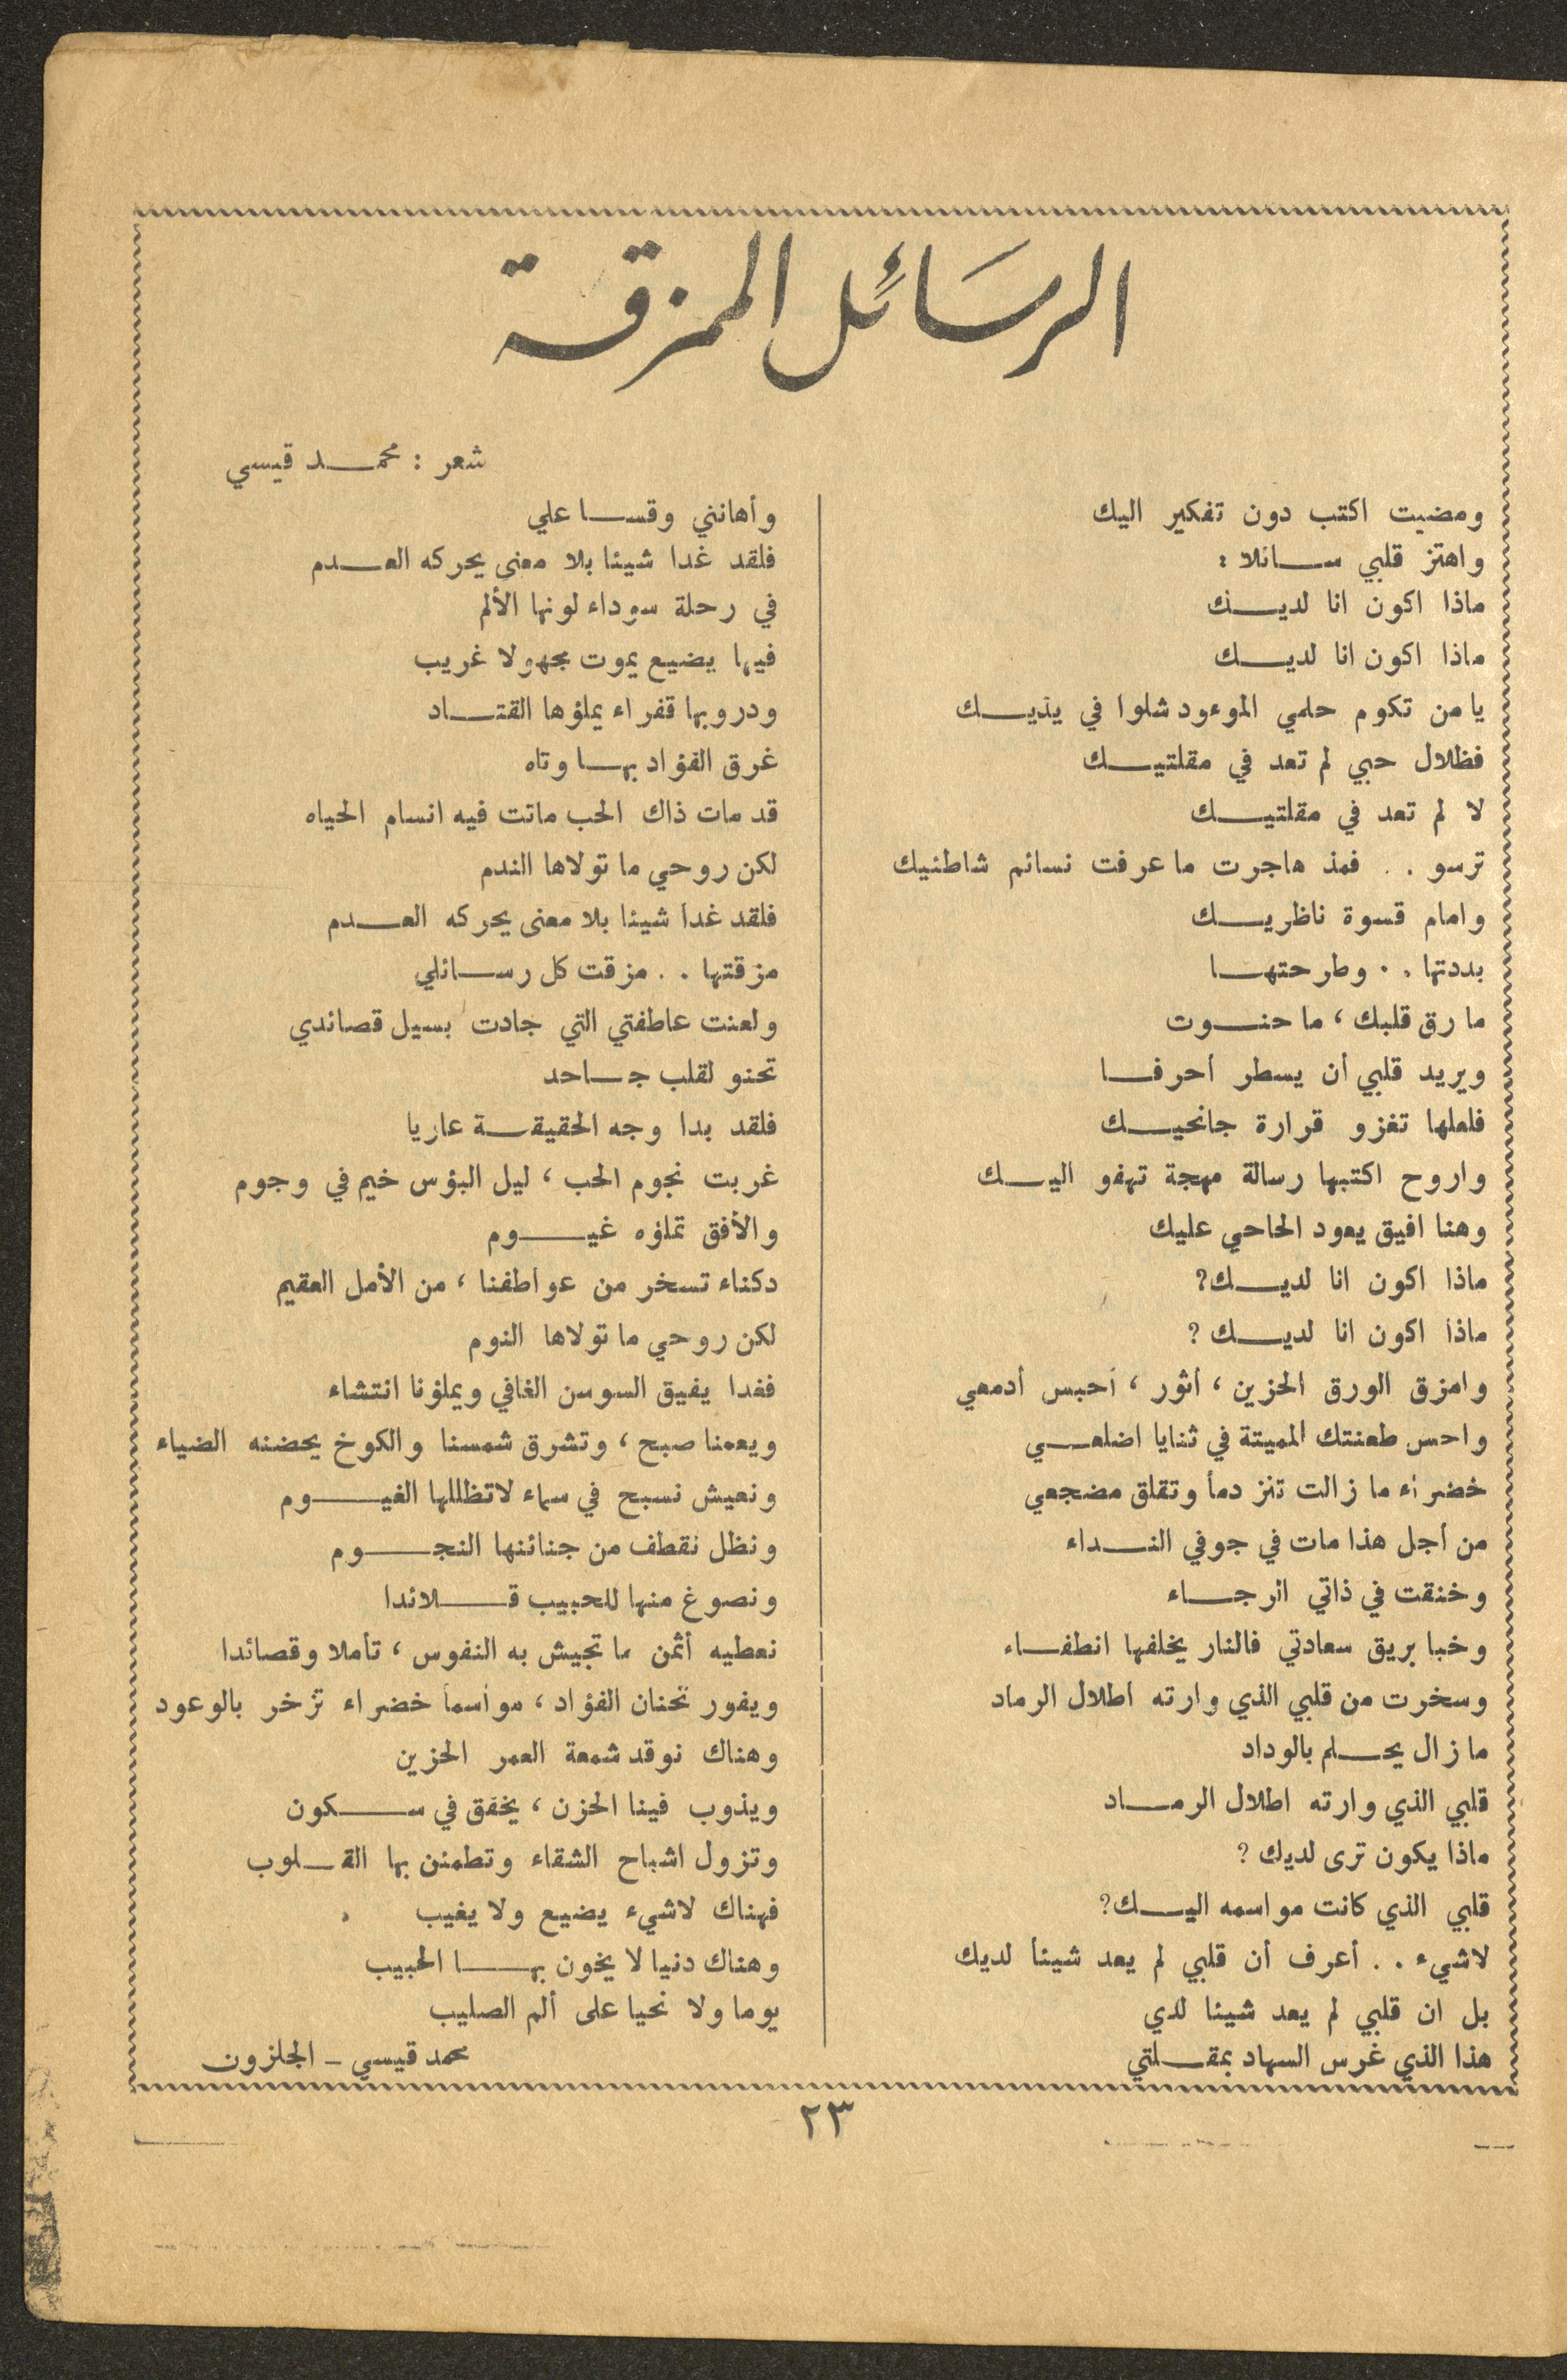 الرسَائل الممزقة
شعر : محمد قيسي
ومضيت اكتب دون تفكير اليك
واهتز قلبي سائلا :
ماذا اكون انا لديك
ماذا اكون انا لديك
يامن تكوم حلمي الموءود شلوا في يديك
فظلال حبي لم تعد في مقلتيك
لا لم تعد في مقلتيك
ترسو . . فمذ هاجرت ما عرفت نسائم شاطئيك
وامام قسوة ناظريك
بددتها . . وطرحتها
ما رق قلبك ، ما حنوت
ويريد قلبي أن يسطر أحرفا
فلعلها تغزو قرارة جانحيك
واروح اكتبها رسالة مهجة تهفو اليك
وهنا افيق يعود الحاحي عليك
ماذا اكون انا لديك؟
ماذا اكون انا لديك ؟
وامزق الورق الحزين ، أثور ، أحبس أدمعي
واحس طعنتك المميتة في ثنايا اضلعي
خضراء ما زالت تنز دمأ وتقلق مضجعي
من أجل هذا مات في جوفي النداء
وخنقت في ذاتي الرجاء
وخبا بريق سعادتي فالنار يخلفها انطفاء
وسخرت من قلبي الذي وارته اطلال الرماد
ما زال يحلم بالوداد
قلبي الذي وارته اطلال الرماد
ماذا يكون ترى لديك ؟
قلبي الذي كانت مواسمه اليك؟
لاشيء . . أعرف أن قلبي لم يعد شيئأ لديك
بل ان قلبي لم يعد شيئا لدي
هذا الذي غرس السهاد بمقلتي
وأهانني وقسا علي
فلقد غدا شيئا بلا معنى يحركه العدم
في رحلة سوداء لونها الألم
فيها يضيع يموت مجهولا غريب
ودروبها قفراء يملؤها القتاد
غرق الفؤاد بها وتاه
قد مات ذاك الحب ماتت فيه انسام الحياه
لكن روحي ما تولاها الندم
فلقد غدا شيئا بلا معنى يحركه العدم
مزقتها . . مزقت كل رسائلي
ولعنت عاطفتي التي جادت بسيل قصائدي
تحنو لقلب جاحد
فلقد بدا وجه الحقيقة عاريا
غربت نجوم الحب ، ليل البؤس خيم في وجوم
والأفق تملؤه غيوم
دكناء تسخر من عواطفنا ، من الأمل العقيم
لكن روحي ما تولاها النوم
فغدا يفيق السوسن الغافي ويملؤنا انتشاء
ويعمنا صبح ، وتشرق شمسنا والكوخ يحضنه الضياء
ونعيش نسبح في سماء لاتظللها الغيوم
ونظل نقطف من جنائنها النجوم
ونصوغ منها للحبيب قلائدا
نعطيه أثمن ما تجيش به النفوس ، تأملا وقصائدا
ويفور تحنان الفؤاد ، مواسمأ خضراء تزخر بالوعود
وهناك نوقد شمعة العمر الحزين
ويذوب فينا الحزن ، يخفق في سكون
وتزول اشباح الشقاء وتطمئن بها القلوب
فهناك لاشيء يضيع ولا يغيب .
وهناك دنيا لا يخون بها الحبيب
يوما ولا نحيا على ألم الصليب
محمد قيسي - الجلزون
٢٣